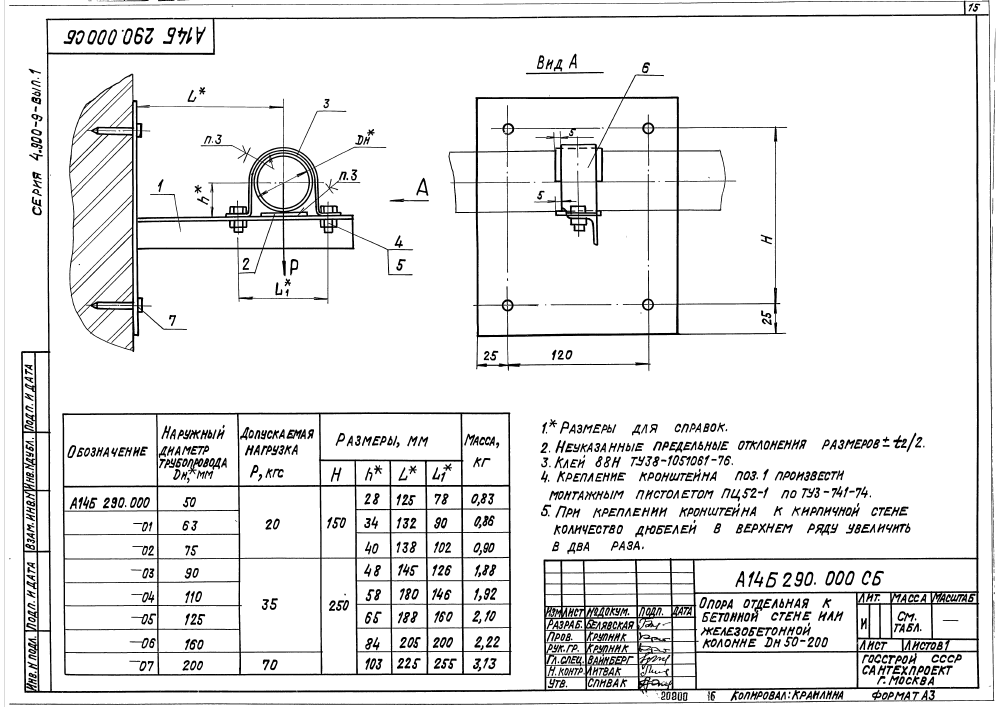 15
А14Б 290.000 СБ
СЕРИЯ 4.900-9-ВЫП.1
L*
3
Dн*
п.3
п.3
h*
1
А
2
Р
L1*
4
5
7
Вид А
6
5
5
Н
25
25
120
Обозначение
Наружный диаметр трубопровода Dн,* мм
Допускаемая нагрузка Р, кгс
Размеры, мм
Масса, кг
Н h* L* L1*
А14Б 290.000 50 20 150 28 125 78 0,83
-01 63 34 132 90 0,86
-02 75 40 138 102 0,90
-03 90 35 250 48 145 126 1,88
-04 110 58 180 146 1,92
-05 125 65 188 160 2,10
-06 160 84 205 200 2,22
-07 200 70 103 225 255 3,13
1.* Размеры для справок.
2. Неуказанные предельные отклонения размеров ± t2/2.
3. Клей 88Н ТУ38-1051061-76.
4. Крепление кронштейна поз.1 произвести
монтажным пистолетом ПЦ52-1 по ТУ3-741-74.
5. При креплении кронштейна к кирпичной стене
количество дюбелей в верхнем ряду увеличить
в два раза.
А14Б 290.000 СБ
Изм Лист № докум. Подп. Дата
Разраб. Белявская
Пров. Крупник
Рук.гр. Крупник
Гл.спец. Вайнберг
Н.контр. Литвак
Утв. Спивак
Опора отдельная к
бетонной стене или
железобетонной
колонне Dн 50-200
Лит. Масса Масштаб
И См. табл. —
Лист Листов 1
Госстрой СССР
Сантехпроект
г. Москва
20800 16 Копировал: Крайлина Формат А3
Инв.№ подл. Подп. и дата Взам.инв.№ Инв.№ дубл. Подп. и дата